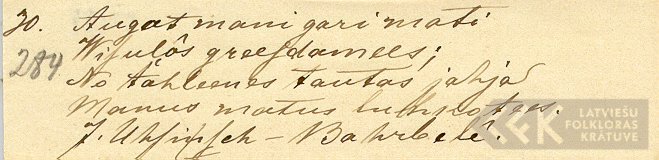 30. Augat mani gari mati
284. Wiſulôs greeſdamees;
No tahleenes tautas jahja
Manus matus luhkotees.
J. – Bahrbelē.
LFK LATVIEŠU
FOLKLORAS
KRĀTUVE